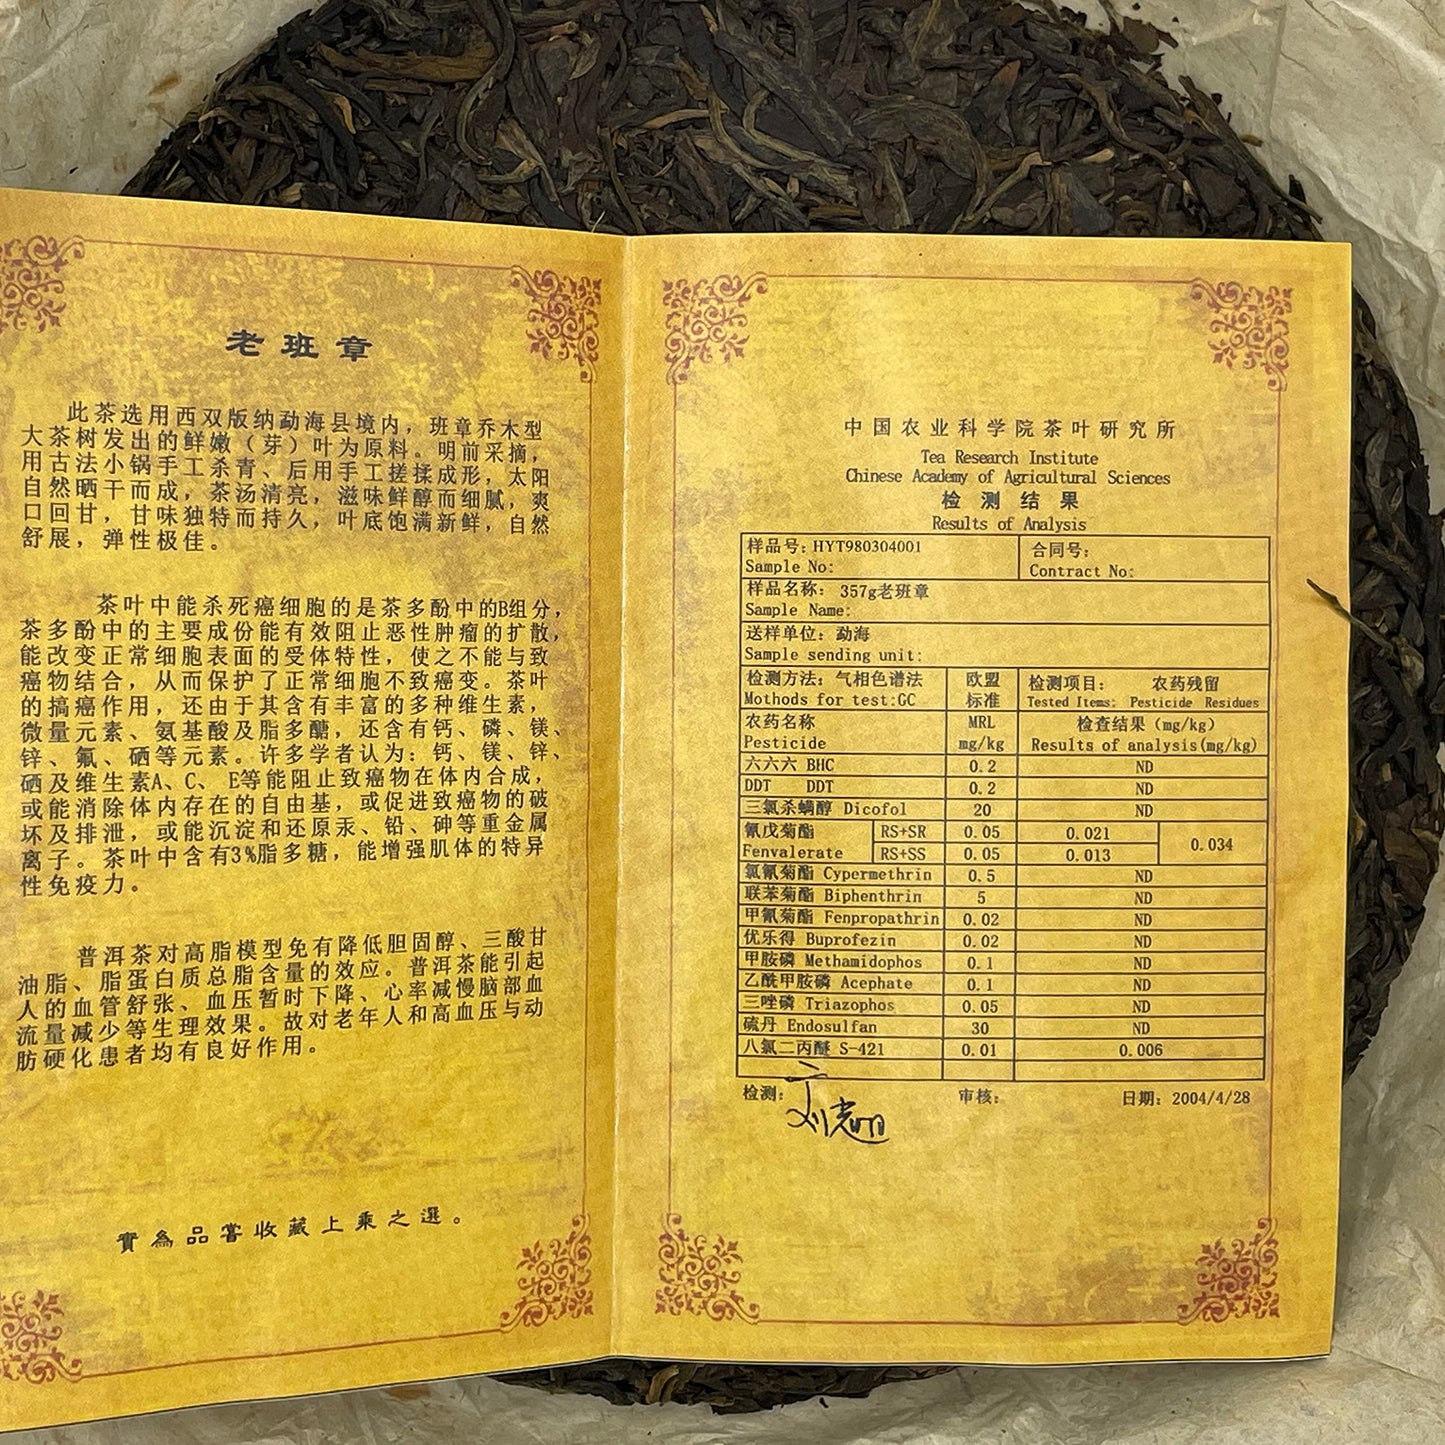 老班章
此茶选用西双版纳勐海县境内，班章乔木型
大茶树发出的鲜嫩（芽）叶为原料。明前采摘，
用古法小锅手工杀青、后用手工搓揉成形，太阳
自然晒干而成，茶汤清亮，滋味鲜醇而细腻，爽
口回甘，甘味独特而持久，叶底饱满新鲜，自然
舒展，弹性极佳。
茶叶中能杀死癌细胞的是茶多酚中的B组分，
茶多酚中的主要成份能有效阻止恶性肿瘤的扩散，
能改变正常细胞表面的受体特性，使之不能与致
癌物结合，从而保护了正常细胞不致癌变。茶叶
的搞癌作用，还由于其含有丰富的多种维生素，
微量元素、氨基酸及脂多醣，还含有钙、磷、镁、
锌、氟、硒等元素。许多学者认为：钙、镁、锌、
硒及维生素A、C、E等能阻止致癌物在体内合成，
或能消除体内存在的自由基，或促进致癌物的破
坏及排泄，或能沉淀和还原汞、铅、砷等重金属
离子。茶叶中含有3%脂多糖，能增强肌体的特异
性免疫力。
普洱茶对高脂模型免有降低胆固醇、三酸甘
油脂、脂蛋白质总脂含量的效应。普洱茶能引起
人的血管舒张、血压暂时下降、心率减慢脑部血
流量减少等生理效果。故对老年人和高血压与动
肪硬化患者均有良好作用。
實為品嘗收藏上乘之選。
中国农业科学院茶叶研究所
Tea Research Institute
Chinese Academy of Agricultural Sciences
检测结果
Results of Analysis
样品号：HYT980304001 合同号：
Sample No: Contract No:
样品名称： 357g老班章
Sample Name:
送样单位：勐海
Sample sending unit:
检测方法：气相色谱法 欧盟 检测项目： 农药残留
Mothods for test:GC 标准 Tested Items: Pesticide Residues
农药名称 MRL 检查结果（mg/kg）
Pesticide mg/kg Results of analysis(mg/kg)
六六六 BHC 0.2 ND
DDT DDT 0.2 ND
三氯杀螨醇 Dicofol 20 ND
氰戊菊酯 RS+SR 0.05 0.021 0.034
Fenvalerate RS+SS 0.05 0.013
氯氰菊酯 Cypermethrin 0.5 ND
联苯菊酯 Biphenthrin 5 ND
甲氰菊酯 Fenpropathrin 0.02 ND
优乐得 Buprofezin 0.02 ND
甲胺磷 Methamidophos 0.1 ND
乙酰甲胺磷 Acephate 0.1 ND
三唑磷 Triazophos 0.05 ND
硫丹 Endosulfan 30 ND
八氯二丙醚 S-421 0.01 0.006
检测： 审核： 日期：2004/4/28